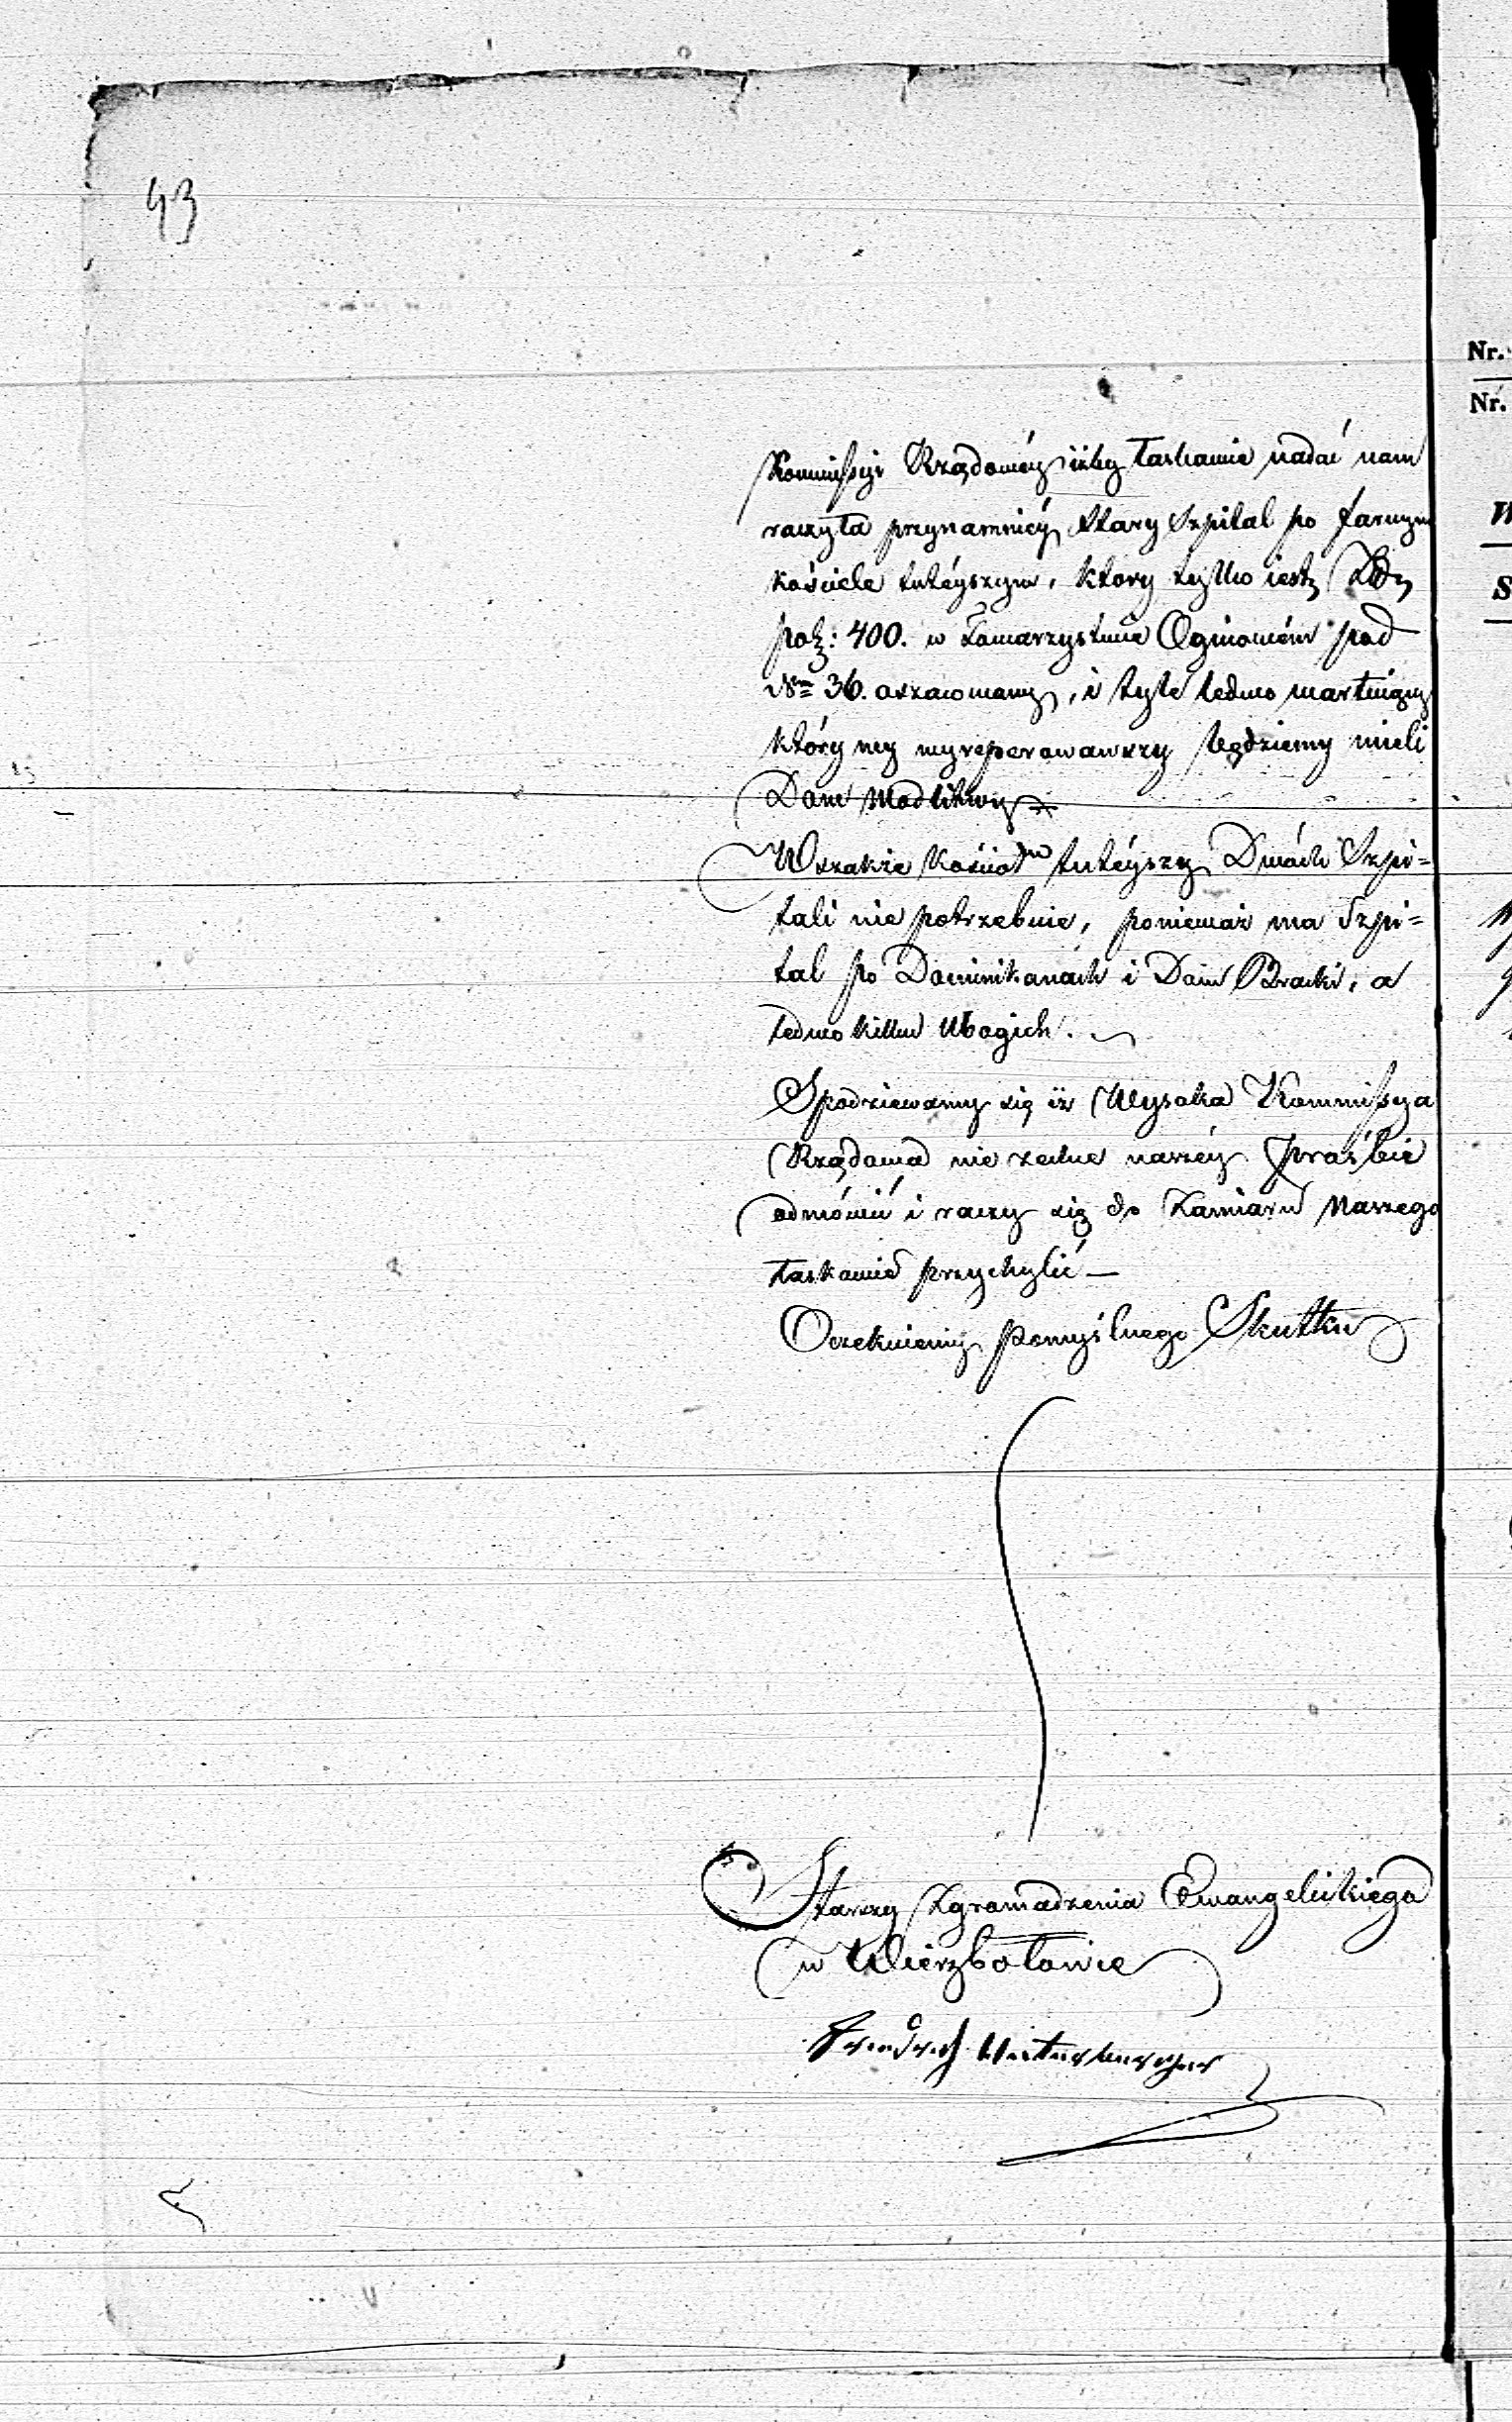 43
Kommissyi Rządowéy iżby łaskawie nadać nam
raczyła przynamniéy Stary Szpital po farnym
kościele tutéyszym, ktory tylko iest
pol: 400. w Towarzystwie Ogniowém pod
Nrm 36. oszacowany, i tyle ledwo wartuiący
który my wyreperowawszy będziemy mieli
Dom Modlitwy
Wszakże kościół tutéyszy Dwóch Szpi-
tali nie potrzebuie, ponieważ ma Szpi-
tal po Dominikanach i Dom Bracki, a
ledwo kilku Ubogich.
Spodziewamy się iż Wysoka Kommissya
Rządowa nie zechce naszéy prośbie
odmówić i raczy się do Zamiaru Naszego
łaskawie przychylić —
Oczekuiemy pomyślnego Skutku
Starszy Zgromadzenia Ewangelickiego
w Wierzbołowie
Friedrich
Nr.
Nr.
W
S